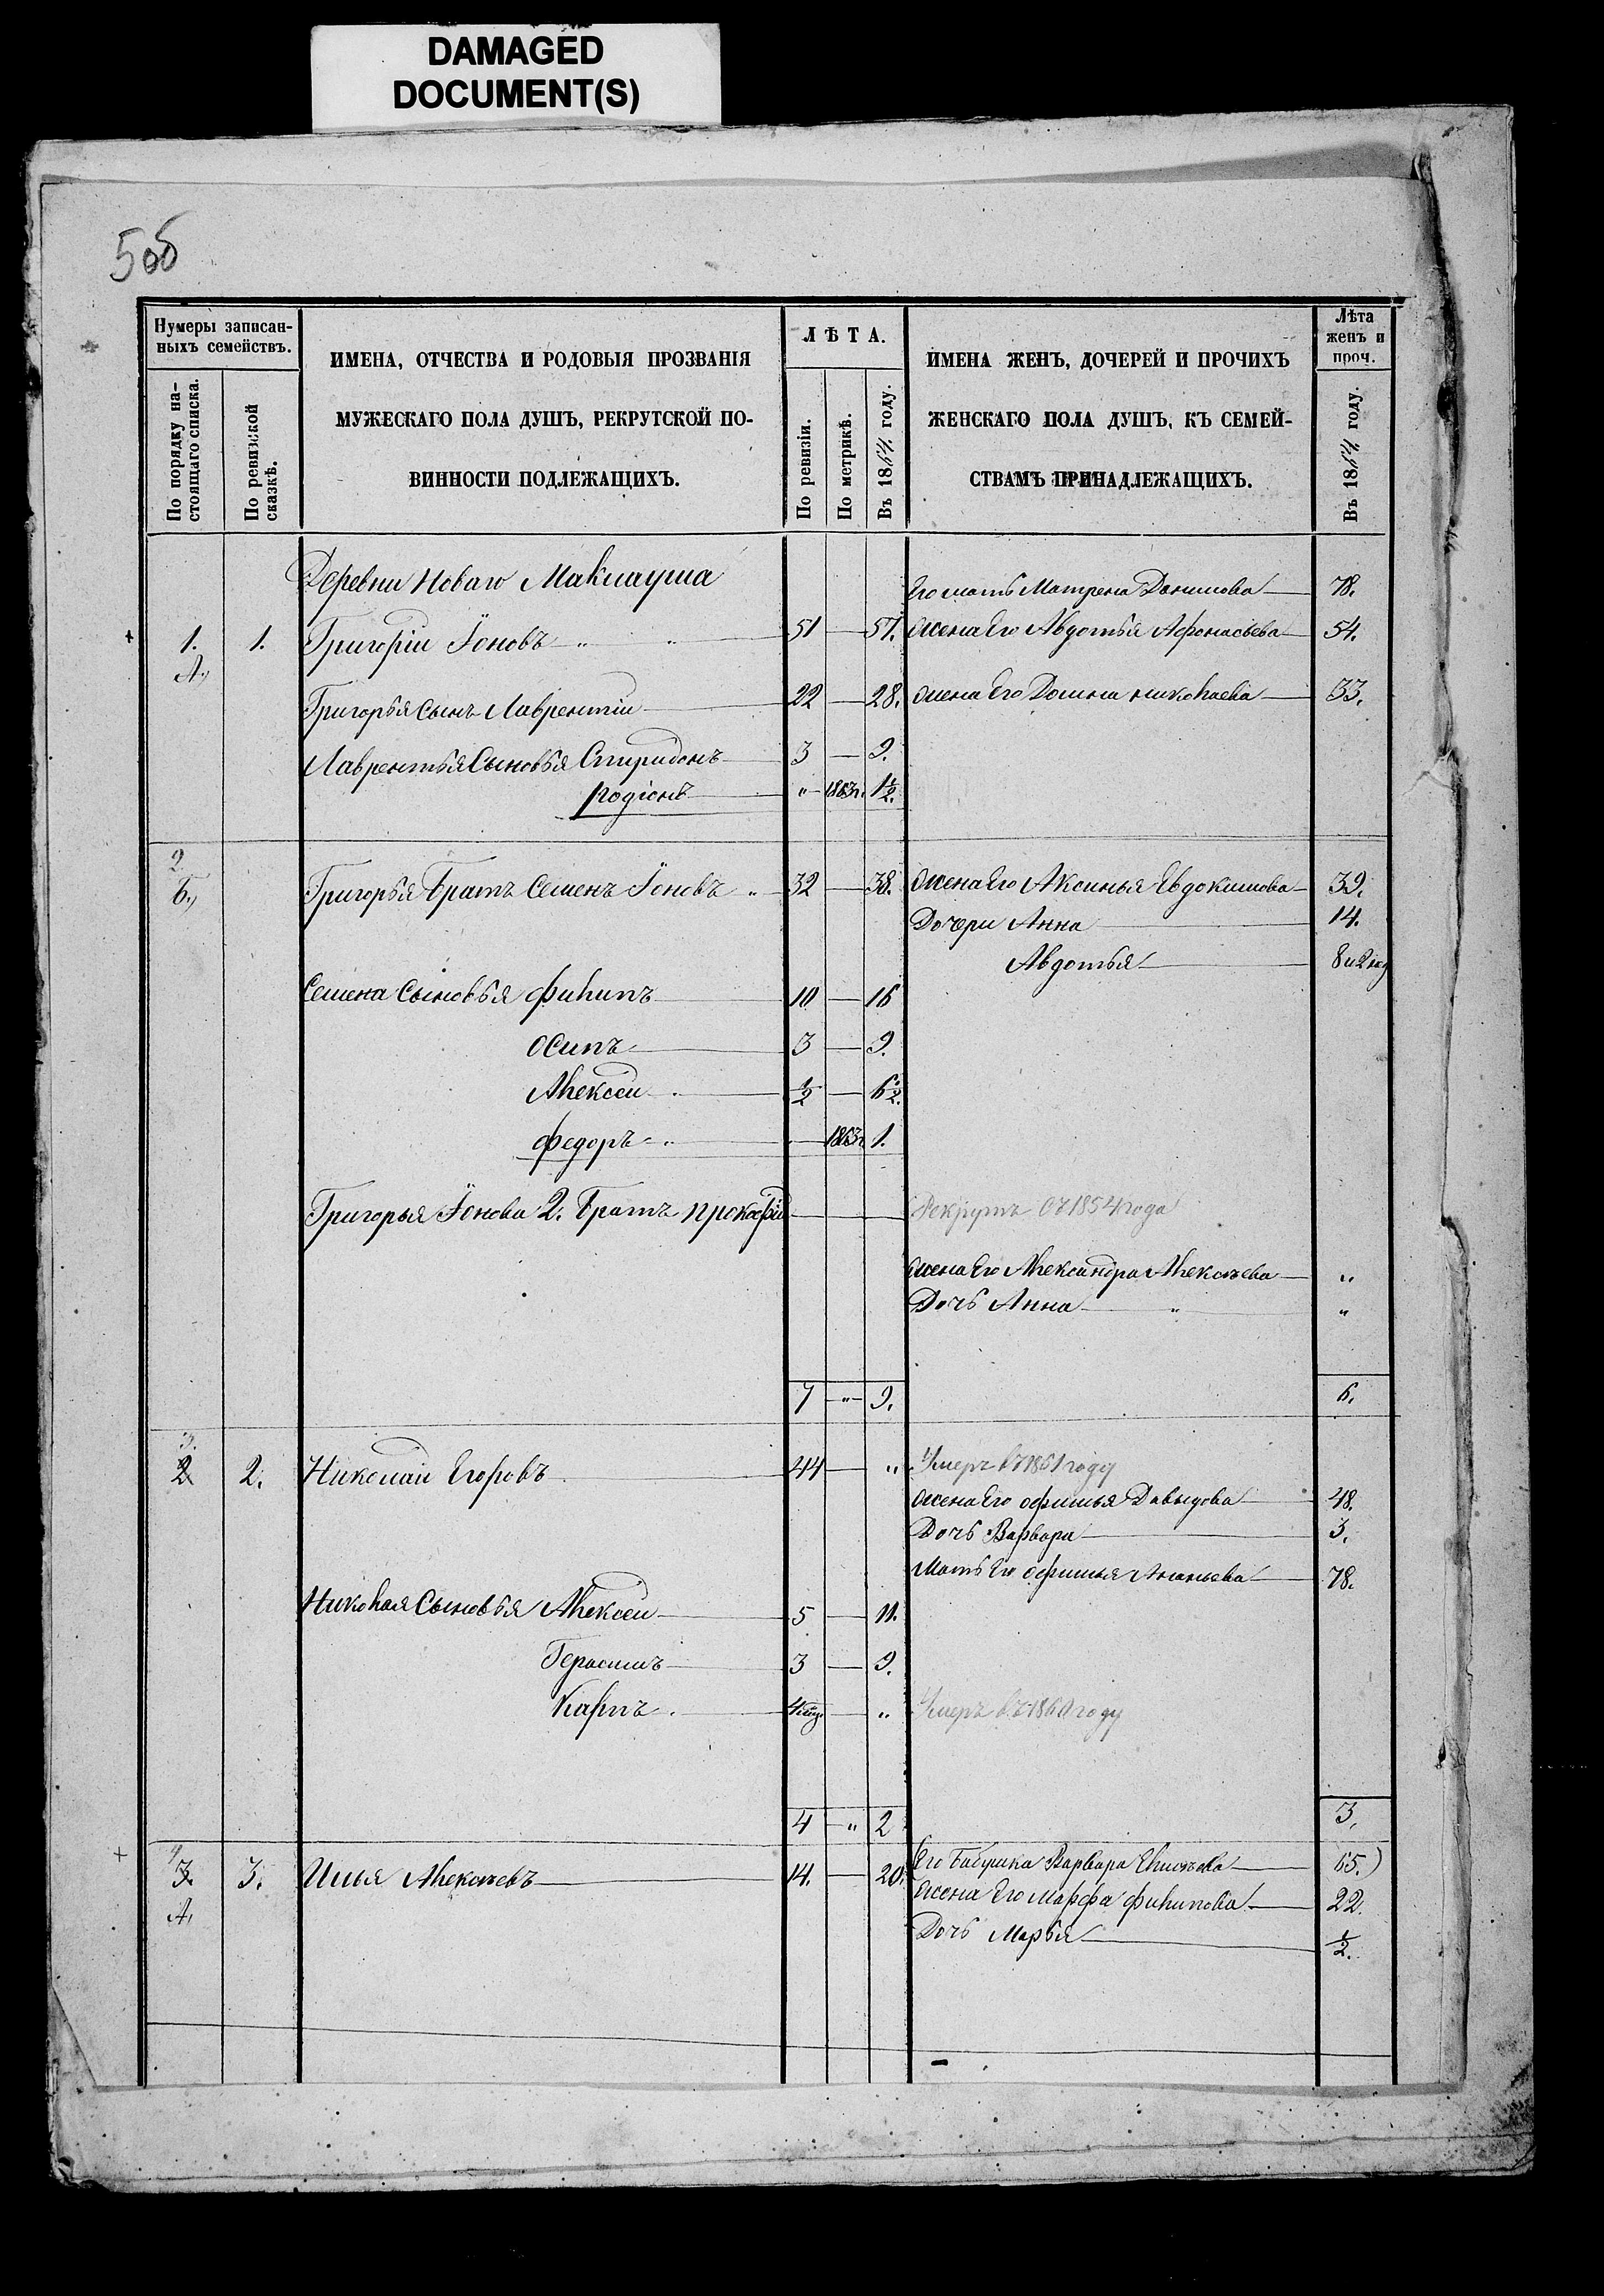 DAMAGED
DOCUMENT(S)
506
Нумеры записан-
ныхъ семействъ.
По порядку на-
стоящаго списка.
По ревизской
сказкѣ.
ИМЕНА, ОТЧЕСТВА И РОДОВЫЯ ПРОЗВАНІЯ
МУЖЕСКАГО ПОЛА ДУШЪ, РЕКРУТСКОЙ ПО-
ВИННОСТИ ПОДЛЕЖАЩИХЪ.
ЛѢТА.
По ревизіи.
По метрикѣ.
Въ 1864 году.
ИМЕНА ЖЕНЪ, ДОЧЕРЕЙ И ПРОЧИХЪ
ЖЕНСКАГО ПОЛА ДУШЪ, КЪ СЕМЕЙ-
СТВАМЪ ПРИНАДЛЕЖАЩИХЪ.
Лѣта
женъ и
проч.
Въ 1864 году.
Деревни Новаго Маклауша
Его мать Матрена Данилова 78.
1. 1. Григоріи Іоновъ 51 — 57. жена Его Авдотья Афонасьева 54.
А,
Григорья Сынъ Лаврентіи 22 — 28. жена Его Домна николаева 33.
Лаврентья Сыновья Спиридонъ 3 — 9.
родіонъ " 1863г. 1½.
2
Б, Григорья Братъ Семенъ Іоновъ " 32 — 38. жена Его Аксинья Евдокимова 39.
Дочери Анна 14.
Авдотья 8 и 2 мѣ
Семена Сыновья филипъ 10 — 16
осипъ 3 — 9.
Алексеи ½ — 6½.
федоръ " — 1863г. 1.
Григорья Іонова 2. Братъ прокофіи — Рекрутъ съ 1854 года
жена Его Александра Алексѣева "
Дочь Анна " "
7 " 9. 6.
3.
2 2. Николаи Егоровъ 44 — " Умеръ въ 1861 году
жена Его офимья Давыдова 48.
Дочь Варвара 3.
Мать Его офимья Ананьева 78.
Николая Сыновья Алексеи 5 — 11.
Герасимъ 3 — 9.
Карпъ 4 мѣ — " Умеръ въ 1860 году
4 " 2 3.
4
3. 3. Илья Алексѣевъ 14. — 20. Его Бабушка Варвара 65.)
А, жена Его марфа филипова 22.
Дочь Марья ½.